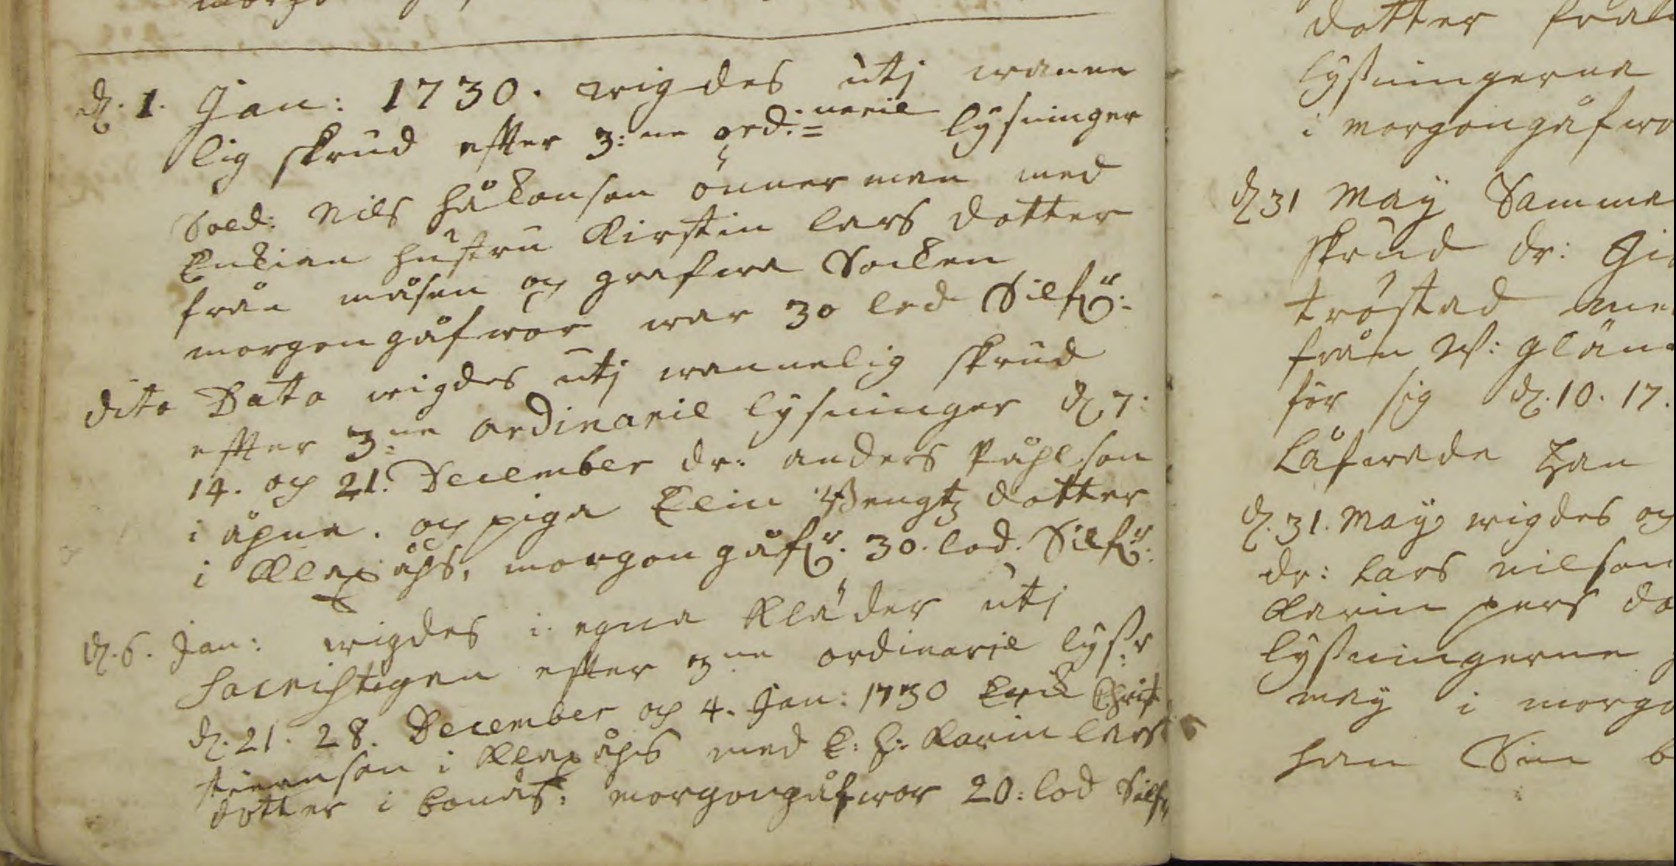 d. 1. Jan: 1730. wigdes utj wanne
lig skrud efter 3:ne ord:=narie lysninger
Sold: Nils Håkanson önnerman med
Enkian hustru Kirstin lars dotter
från måsen og grafwa Socken
morgongåfwor war 30 lod Silfr:
dito Dato wigdes utj wannelig skrud
efter 3ne ordinarie lysninger d. 7.
14. og 21. December dr: anders Påhlson
i åhna. og piga Elin Bengtz dotter
i Klaxåhs, morgongåfr. 30. lod. Silfr:
d. 6. Jan: wigdes i egna Kläder utj
Sacristigen efter 3ne ordinarie lys:r
d. 21. 28. December og 4. Jan: 1730 Erik Christ
tienson i Klaxåhs med E: h: Karin lars
dotter i morgongåfwor 20: lod Silfr
dotter från
lysningerna
i morgongåfwo
d. 31 May Samma
skrud dr:
tröstad me
från W: glän
för sig d. 10. 17.
Låfwade han
d. 31. May wigdes og
dr: Lars nilson
Karin pers do
lysningerna
may i morgo
han Sin b